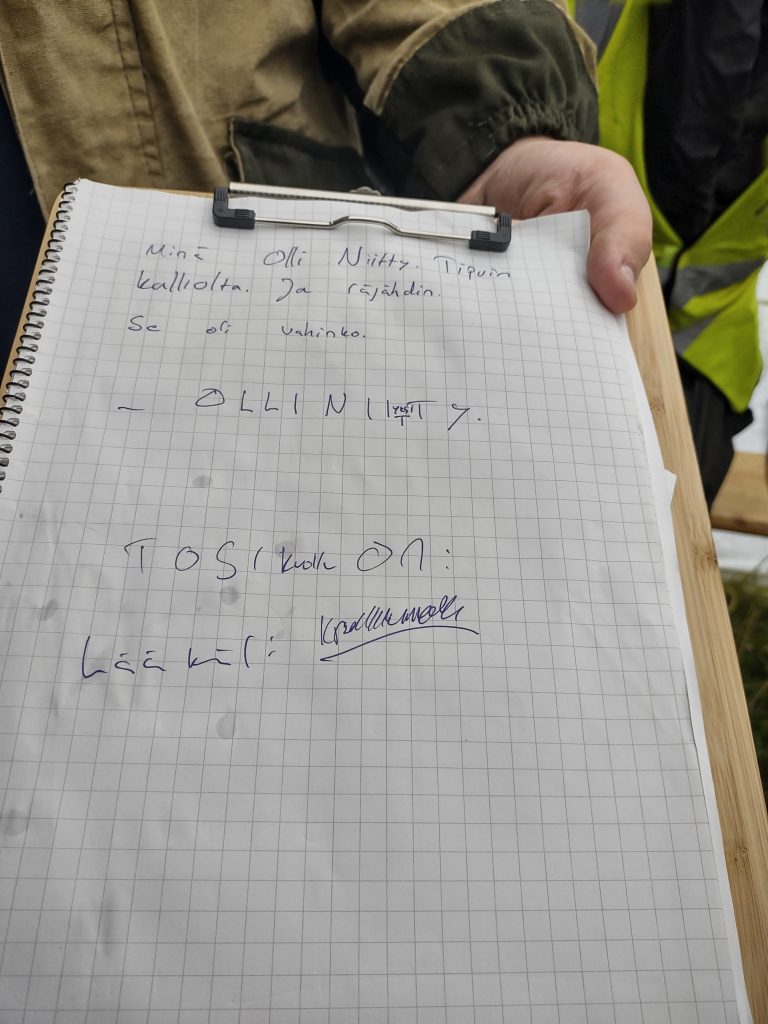 Minä Olli Niitty. Tipuin
kalliolta. Ja räjähdin.
Se oli vahinko.
- OLLI NIITTY.
TOSI ON:
Lääkäri: